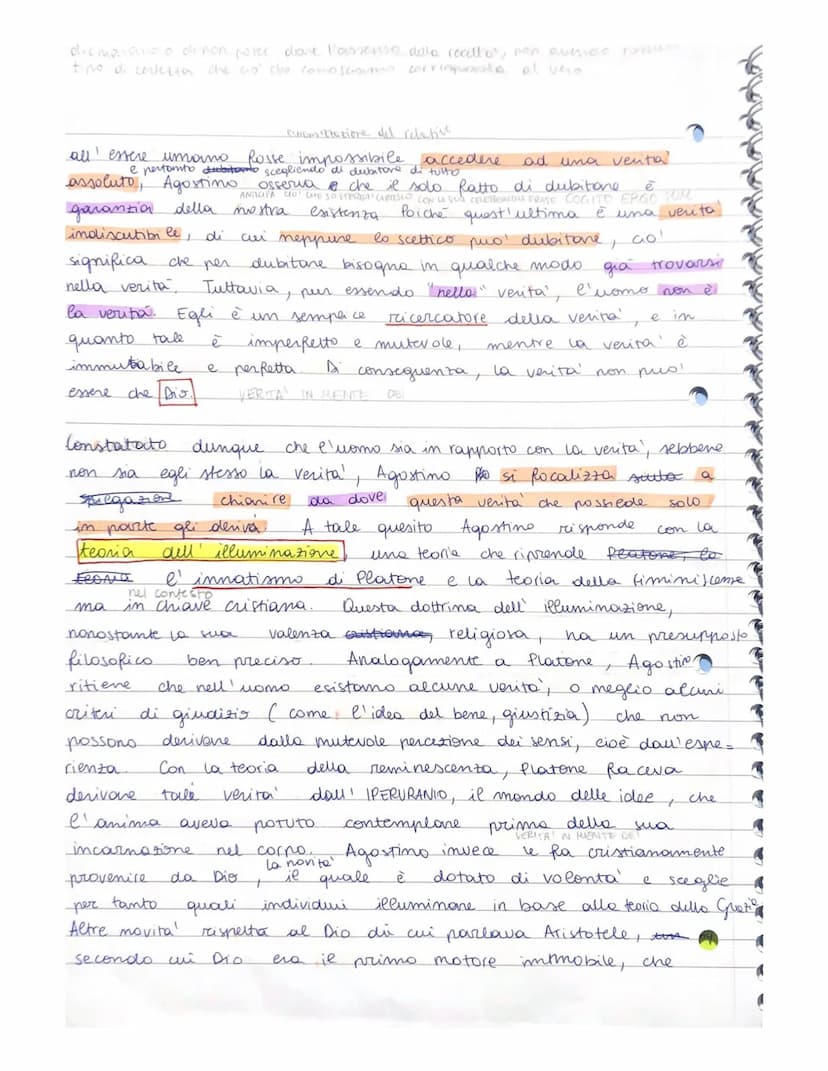 dichiaravano di non poter dare l'assenso della realtà, non avendo nessun
tipo di certezza che ciò che conosciamo corrisponda al vero
constatazione del relative
all' essere umano fosse impossibile accedere ad una verità
e pertanto dubitano scegliendo di dubitare di tutto
assoluto, Agostino osserva e che il solo fatto di dubitare è
ANTICIPA CIO' CHE SOSTERRA' CARTESIO CON LA SUA CELEBERRIMA FRASE COGITO ERGO SUM
garanzia della nostra esistenza Poiché quest'ultima è una verità
indiscutibile, di cui neppure lo scettico può dubitare, ciò
significa che per dubitare bisogna in qualche modo già trovarsi
nella verità. Tuttavia, pur essendo "nella" verità, l'uomo non è
la verità. Egli è un semplice ricercatore della verità, e in
quanto tale è imperfetto e mutevole, mentre la verità è
immutabile e perfetta Di conseguenza, la verità non può
essere che Dio. VERITA' IN MENTE DEI
Constatato dunque che l'uomo sia in rapporto con la verità, sebbene
non sia egli stesso la verità, Agostino si focalizza sulla a
spiegazione chiarire da dove questa verità che possiede solo
in parte gli deriva. A tale quesito Agostino risponde con la
teoria dell' illuminazione, una teoria che riprende Platone, la
teoria l' innatismo di Platone e la teoria della riminiscenza
nel contesto
ma in chiave cristiana. Questa dottrina dell' illuminazione,
nonostante la sua valenza cristiana, religiosa, ha un presupposto
filosofico ben preciso. Analogamente a Platone, Agostino
ritiene che nell'uomo esistano alcune verità, o meglio alcuni
criteri di giudizio ( come l'idea del bene, giustizia) che non
possono derivare dalla mutevole percezione dei sensi, cioè dall'espe=
rienza. Con la teoria della reminescenza, Platone faceva
derivare tale verità dall' IPERURANIO, il mondo delle idee, che
l'anima aveva potuto contemplare prima della sua
VERITA' IN MENTE DEI
incarnazione nel corpo. Agostino invece le fa cristianamente
la novità
provenire da Dio, il quale è dotato di volontà e sceglie
per tanto quali individui illuminare in base alla teoria della Grazia
Altre novità rispetto al Dio di cui parlava Aristotele,
secondo cui Dio era il primo motore immobile, che